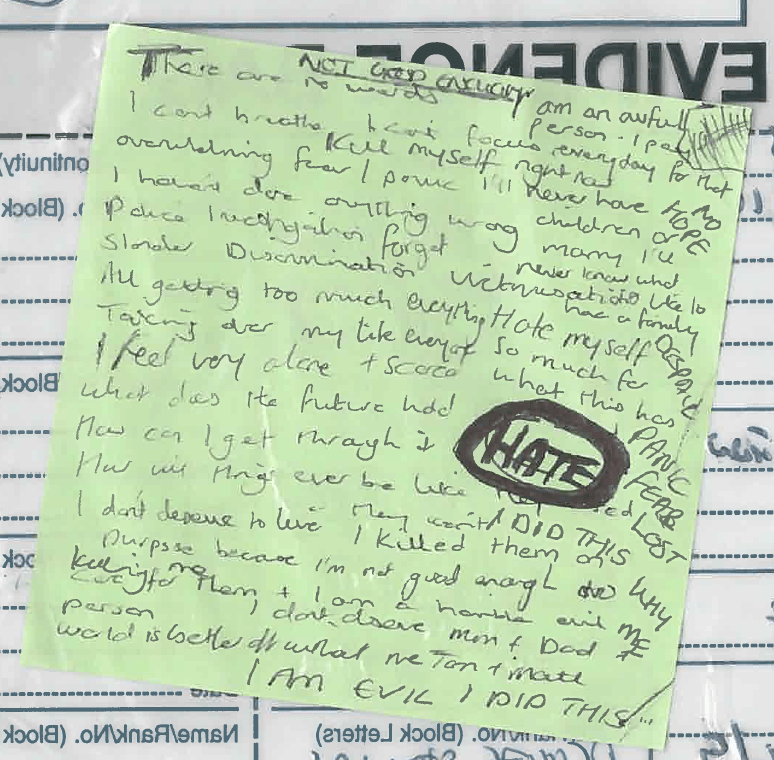 EVIDENCE
NOT GOOD ENOUGH
There are no words
I am an awful person. I pay everyday for that
I cant breathe I cant focus
Kill myself right now
overwhelming fear / panic
I'll never have children or marry I'll never know what its like to have a family
NO HOPE
I havent done anything wrong
Police investigation forget
Slander Discrimination Victimisation
All getting too much everything
Hate myself so much for what this has
DESPAIR
Taking over my life everyday
I feel very alone + scared
what does the future hold
PANIC
How can I get through it
HATE
FEAR
How will things ever be like
LOST
they
I DID THIS
I dont deserve to live
I killed them on purpose because I'm not good enough to care for them + I am a horrible evil person
WHY ME
killing me
I dont deserve mum + Dad
world is better off without me
I AM EVIL I DID THIS
Name/Rank/No. (Block
No. (Block Letters)